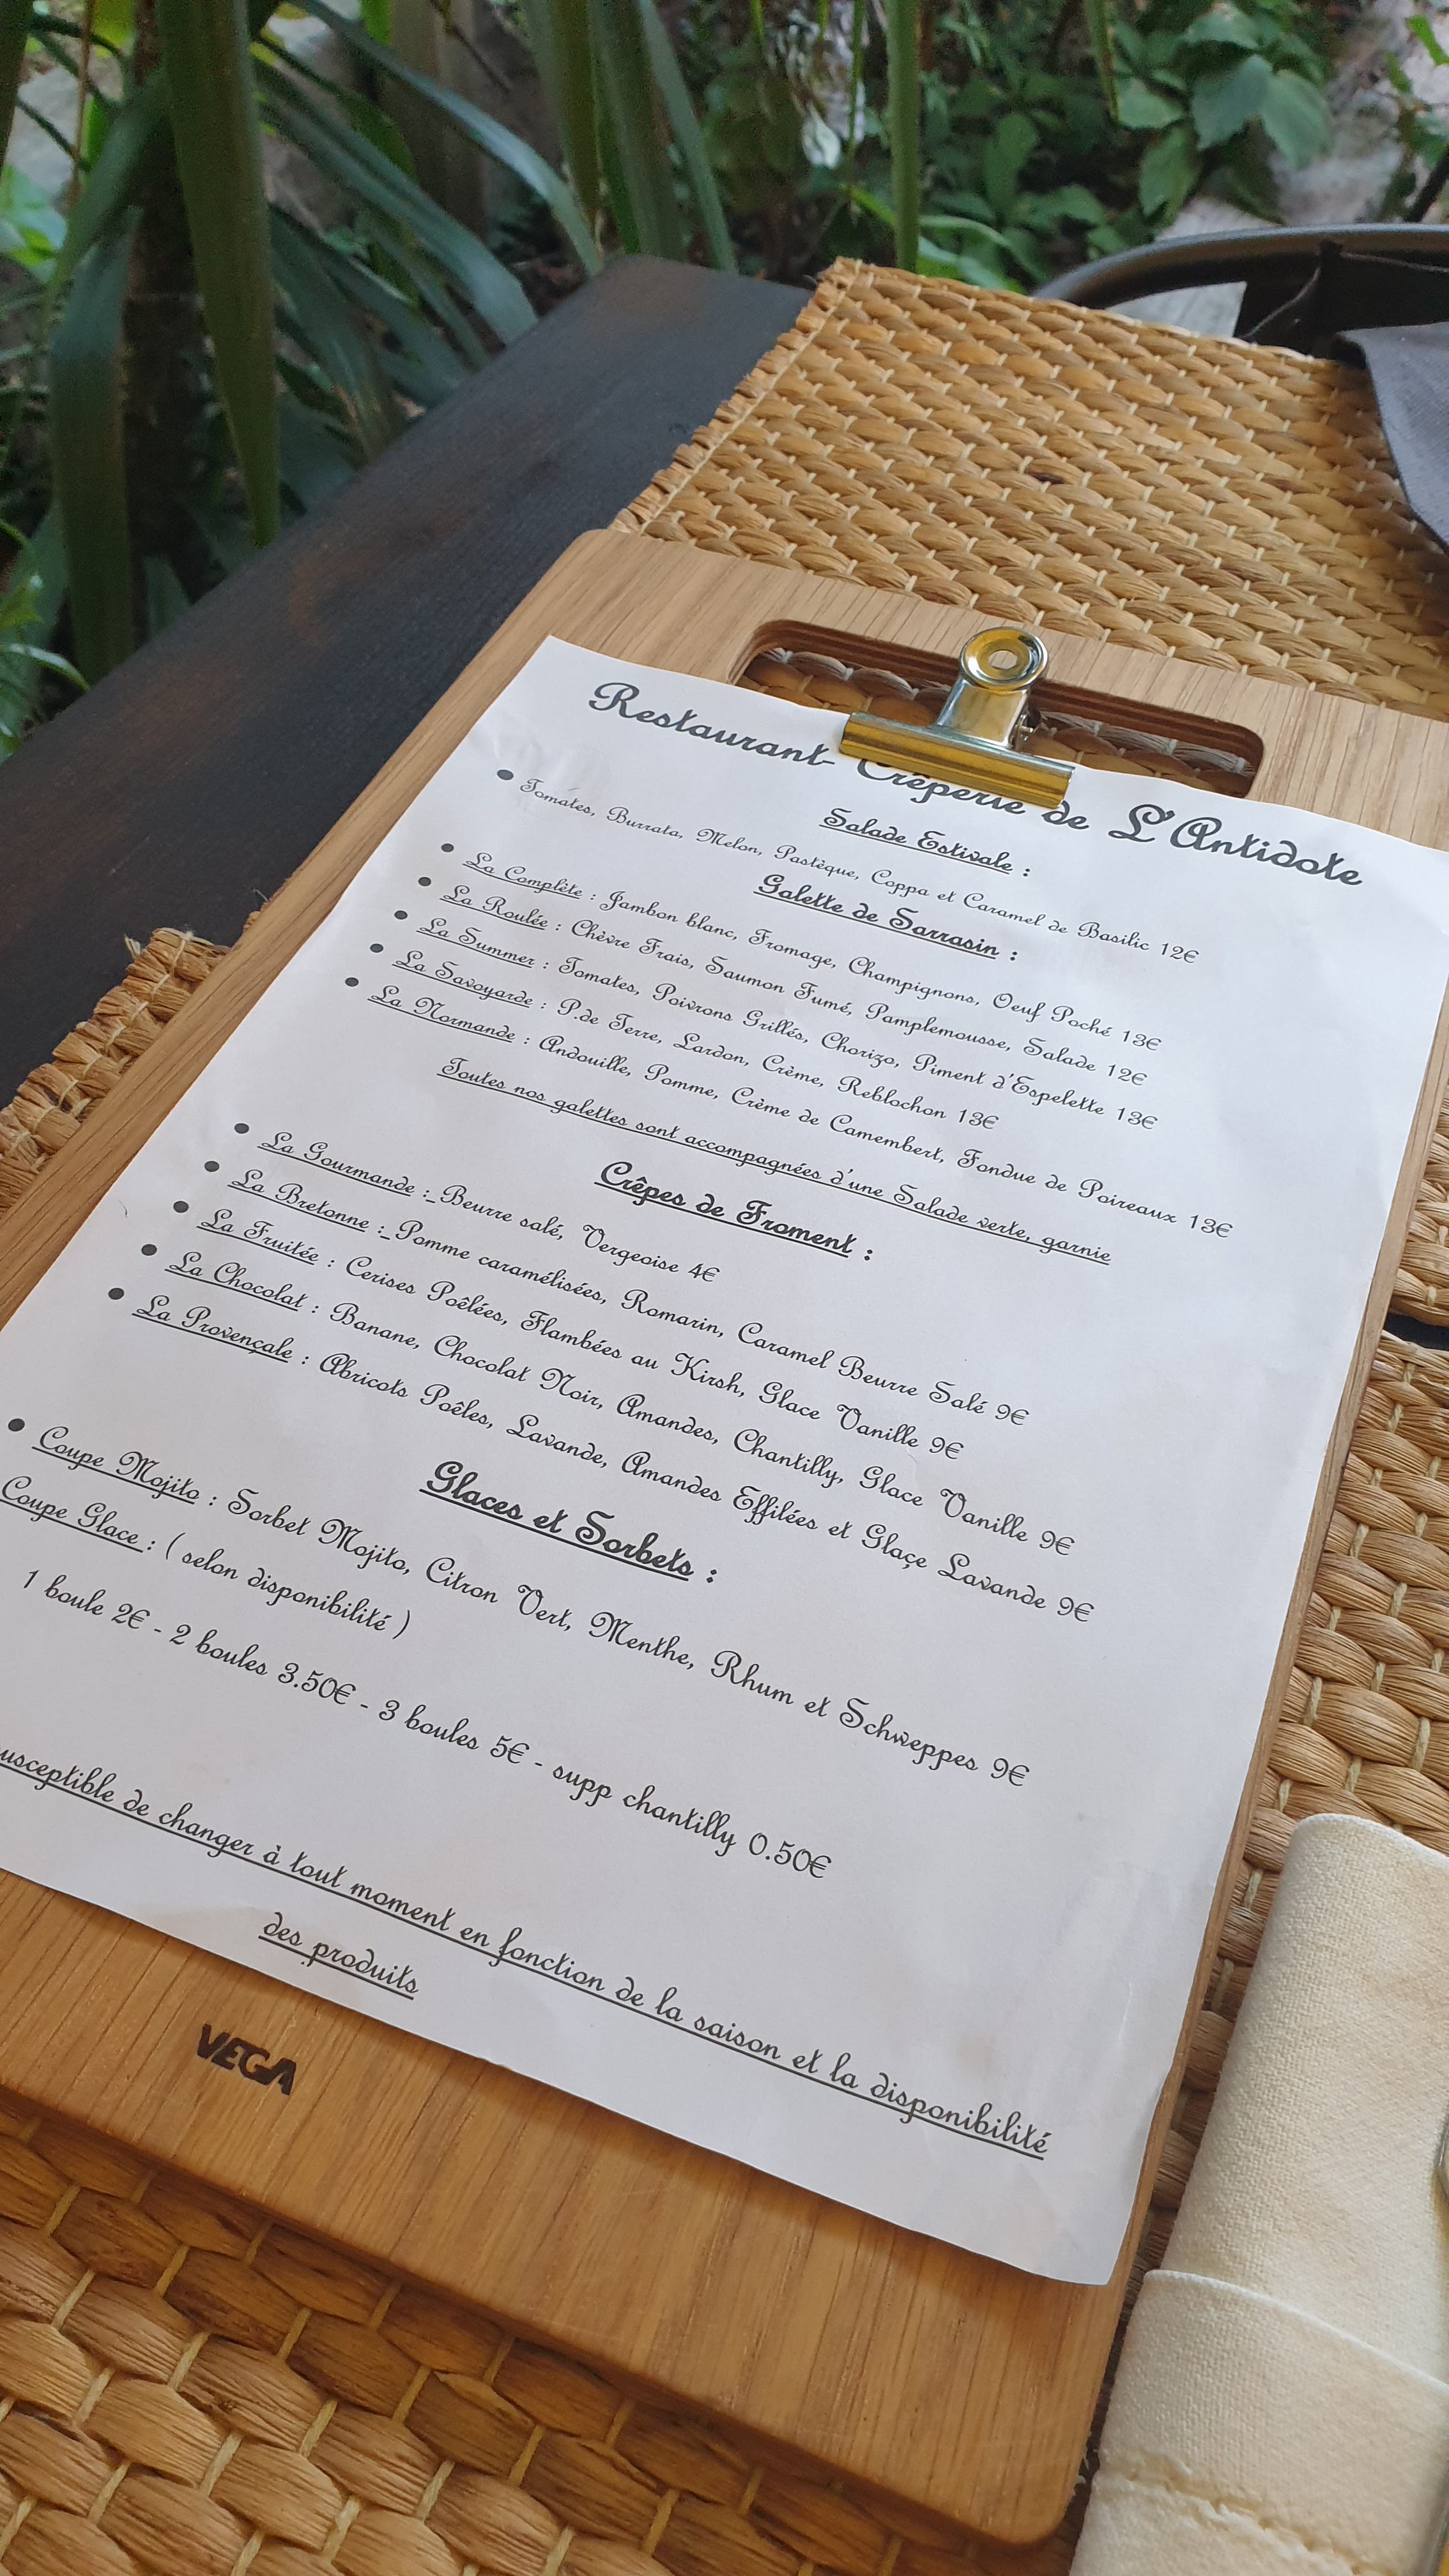 Restaurant- Crêperie de L'Antidote
Salade Estivale :
Tomates, Burrata, Melon, Pastèque, Coppa et Caramel de Basilic 12€
Galette de Sarrasin :
La Complète : Jambon blanc, Fromage, Champignons, Oeuf Poché 13€
La Roulée : Chèvre Frais, Saumon Fumé, Pamplemousse, Salade 12€
La Summer : Tomates, Poivrons Grillés, Chorizo, Piment d'Espelette 13€
La Savoyarde : P.de Terre, Lardon, Crème, Reblochon 13€
La Normande : Andouille, Pomme, Crème de Camembert, Fondue de Poireaux 13€
Toutes nos galettes sont accompagnées d'une Salade verte, garnie
Crêpes de Froment :
La Gourmande : Beurre salé, Vergeoise 4€
La Bretonne : Pomme caramélisées, Romarin, Caramel Beurre Salé 9€
La Fruitée : Cerises Poêlées, Flambées au Kirsh, Glace Vanille 9€
La Chocolat : Banane, Chocolat Noir, Amandes, Chantilly, Glace Vanille 9€
La Provençale : Abricots Poêles, Lavande, Amandes Effilées et Glaçe Lavande 9€
Glaces et Sorbets :
Coupe Mojito : Sorbet Mojito, Citron Vert, Menthe, Rhum et Schweppes 9€
Coupe Glace : ( selon disponibilité )
1 boule 2€ - 2 boules 3.50€ - 3 boules 5€ - supp chantilly 0.50€
usceptible de changer à tout moment en fonction de la saison et la disponibilité
des produits
VEGA